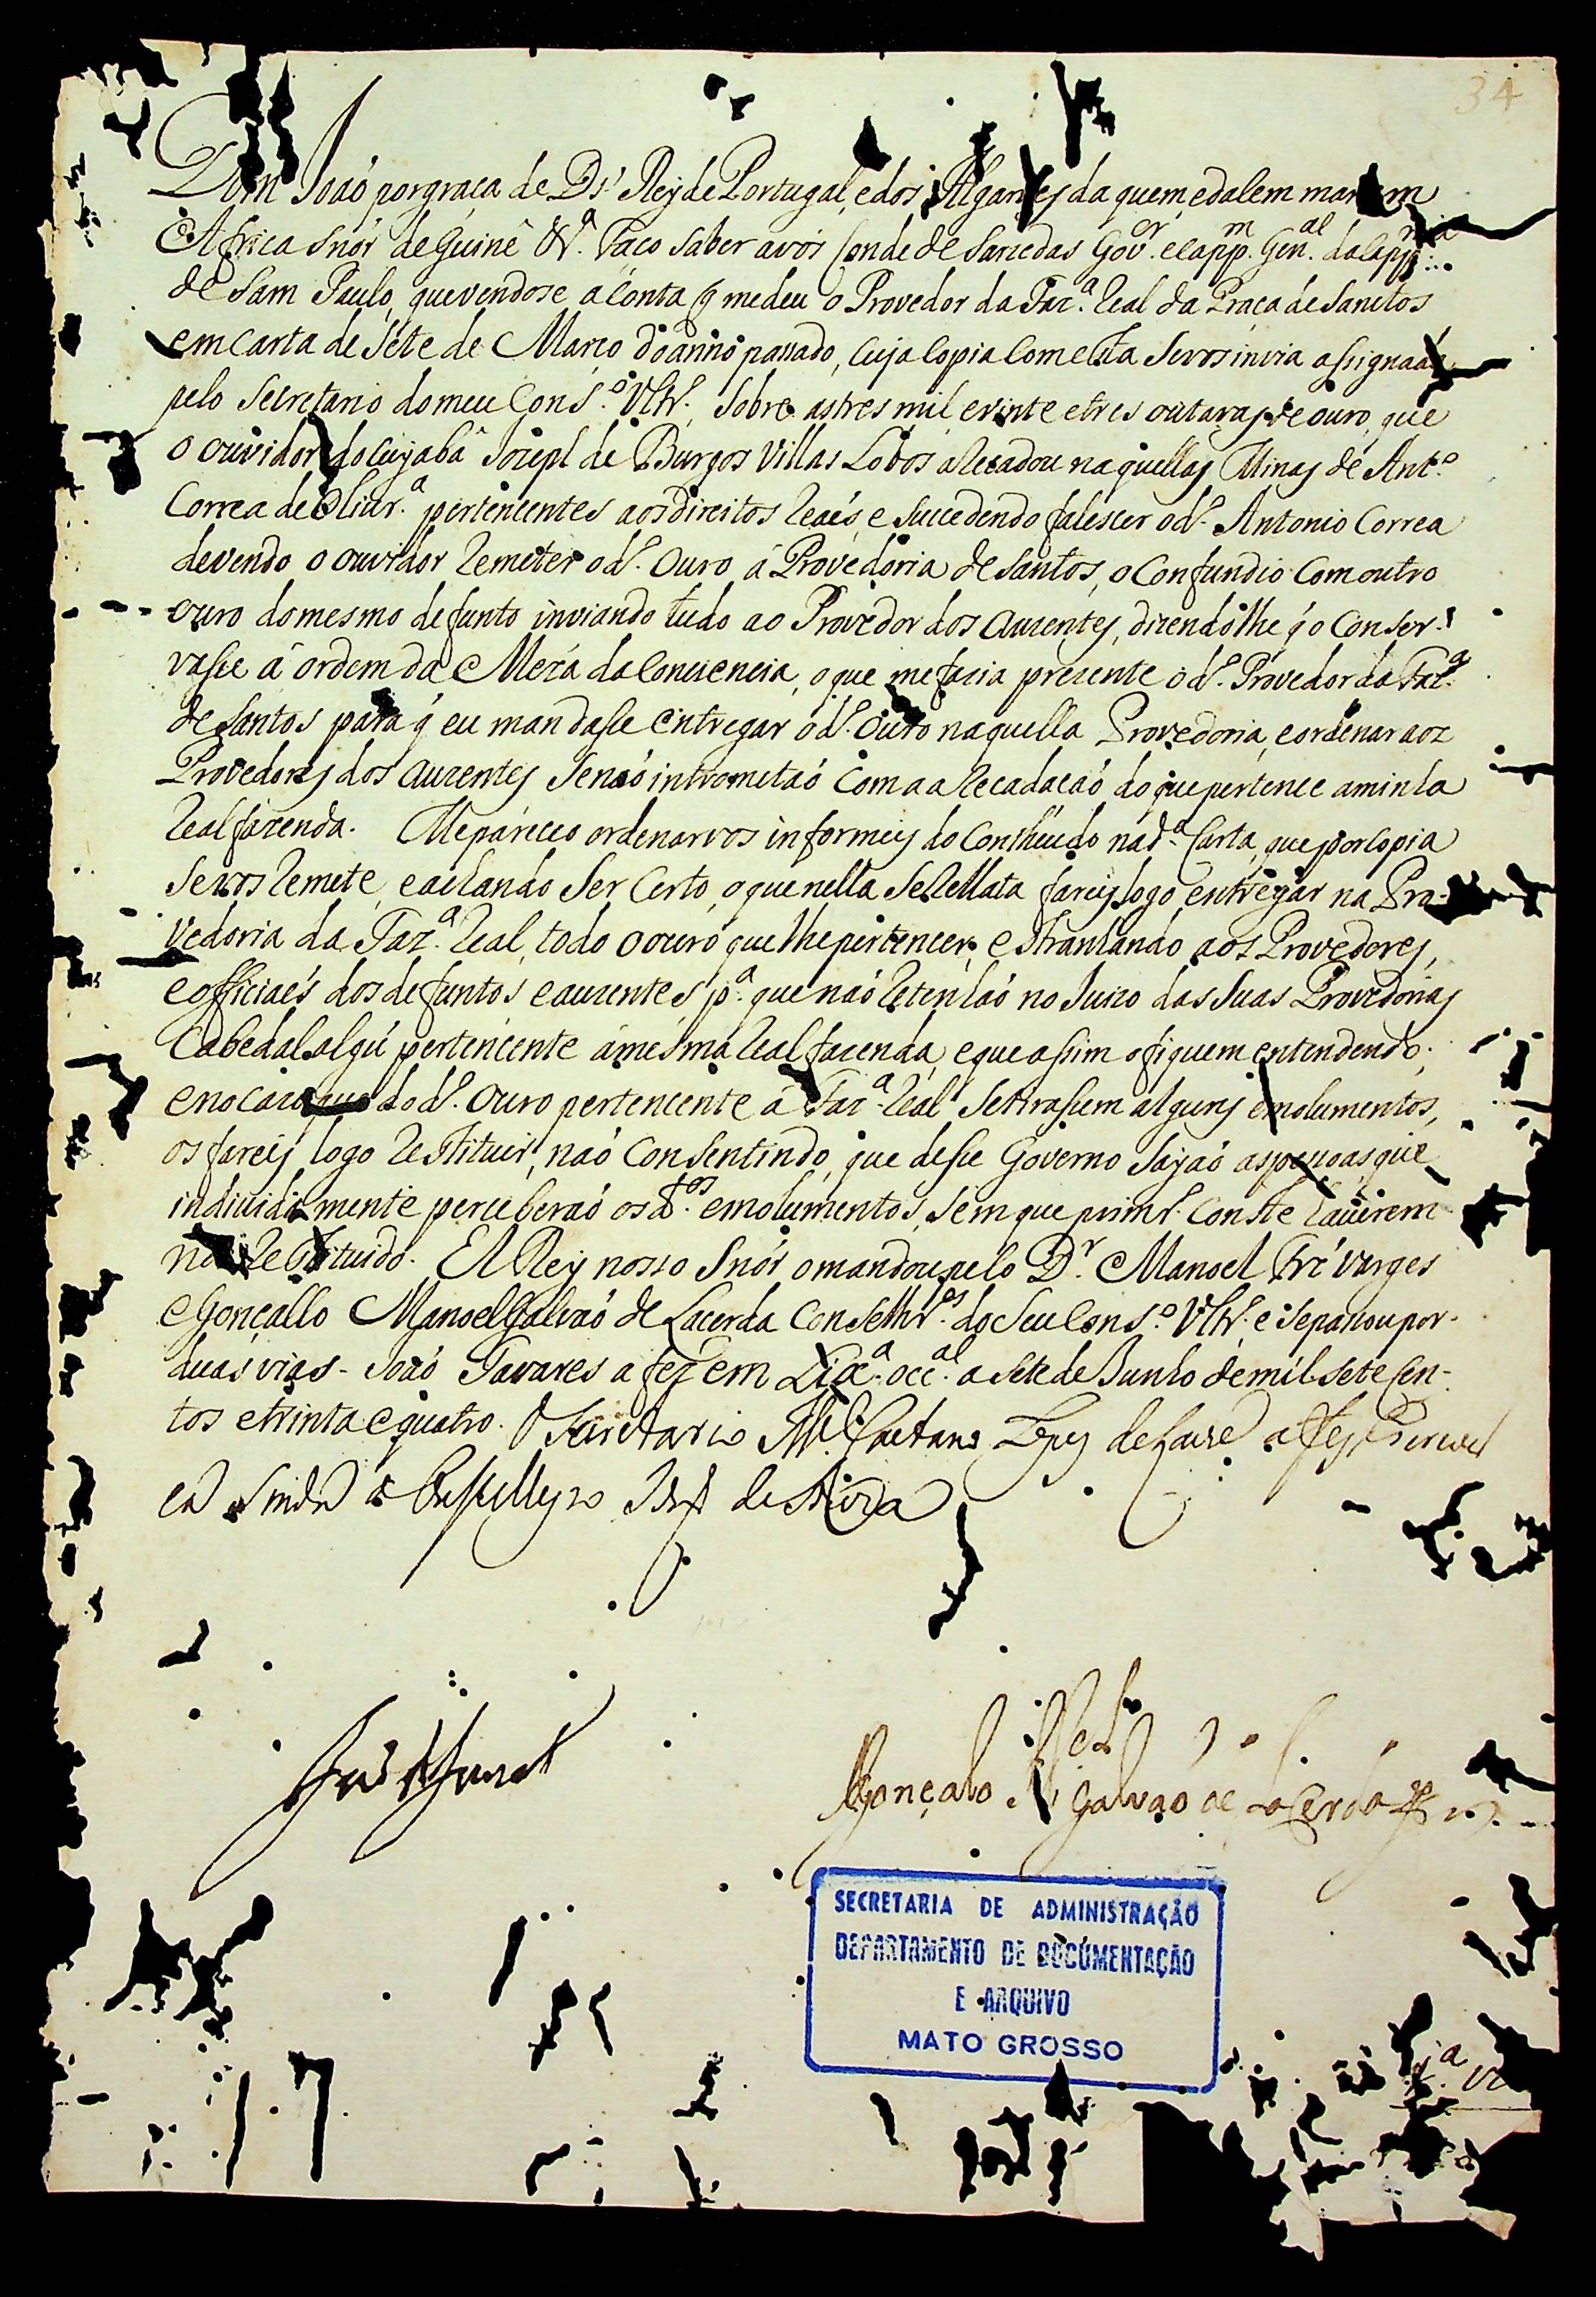 34
Dom Joaõ por graça de Ds.' Rey de Portugal, e dos Algarves da quem, e dalem mar em
Africa Snór de Guiné &.ª Faço saber avós Conde de Sarzedas Gov.or e Capp.m Gen.al da Capp.nia
de Sam Paulo, que vendose a Conta q̃ me deu o Provedor da Faz.ª Real da Praça de Sanctos
em Carta de sete de Março do anno passado, Cuja Copia Com esta Se vos invia assignada
pelo Secretario do meu Cons.º Ultr. Sobre as tres mil, e vinte e tres outavas de ouro, que
o ouvidor do Cuyabâ Jozeph de Burgos Villas Lobos aRecadou na quellas Minas de Ant.º
Correa de Olivr.ª pertencentes aos direitos Reaés, e Succedendo falescer o d.º Antonio Correa
devendo o ouvidor Remeter o d.º Ouro á Provedoria de Santos, o Confundio Com outro
ouro do mesmo defunto inviando tudo ao Provedor dos Auzentes, dizendolhe q̃ o Conser-
vasse á ordem da Meza da Conciencia, o que me fazia prezente o d.º Provedor da Faz.ª
de Santos para q̃ eu mandasse Entregar o d.º Ouro naquella Provedoria, e ordenar aoz
Provedores dos Auzentes Se naõ intrometaõ Com a aRecadaçaõ do que pertence a minha
Real fazenda. Me pareceo ordenarvos informeis do Contheudo na d.ª Carta, que por Copia
Se vos Remete, e achando Ser Certo, o que nella Se Rellata fareis logo entregar na Pro-
vedoria da Faz.ª Real, todo o ouro que lhe pertencer, estranhando aos Provedores,
e officiaés dos defuntos e auzentes, p.ª que naõ Retenhaõ no Juizo das Suas Provedorias
Cabedal algũ pertencente á mesma Real fazenda, e que assim o fiquem entendendo;
e no Cazo que do d.º Ouro pertencente á Faz.ª Real Se tirassem alguns emolumentos,
os fareis logo Restituir, naõ Consentindo, que desse Governo Sayaõ as pessoas que
individamente perceberaõ os d.tos emolumentos, Sem que primr.º Conste haverem
nos Restituido. El Rey nosso Snór o mandou pelo D.r Manoel Frź Varges
e Gonçallo Manoel Galvaõ de Lacerda Conselhr.os do Seu Cons.º Ultr. e Se passou por
duas vias. Joaõ Tavares a fez em Lix.ª occ.al a Sete de Junho de mil Sete Cen-
tos e trinta e quatro. O Secretario M.el Caetano Lopes de Lavre a fes escrever
Gonçalo M.el Galvaõ de Lacerda
SECRETARIA DE ADMINISTRAÇÃO
DEPARTAMENTO DE DOCUMENTAÇÃO
E ARQUIVO
MATO GROSSO